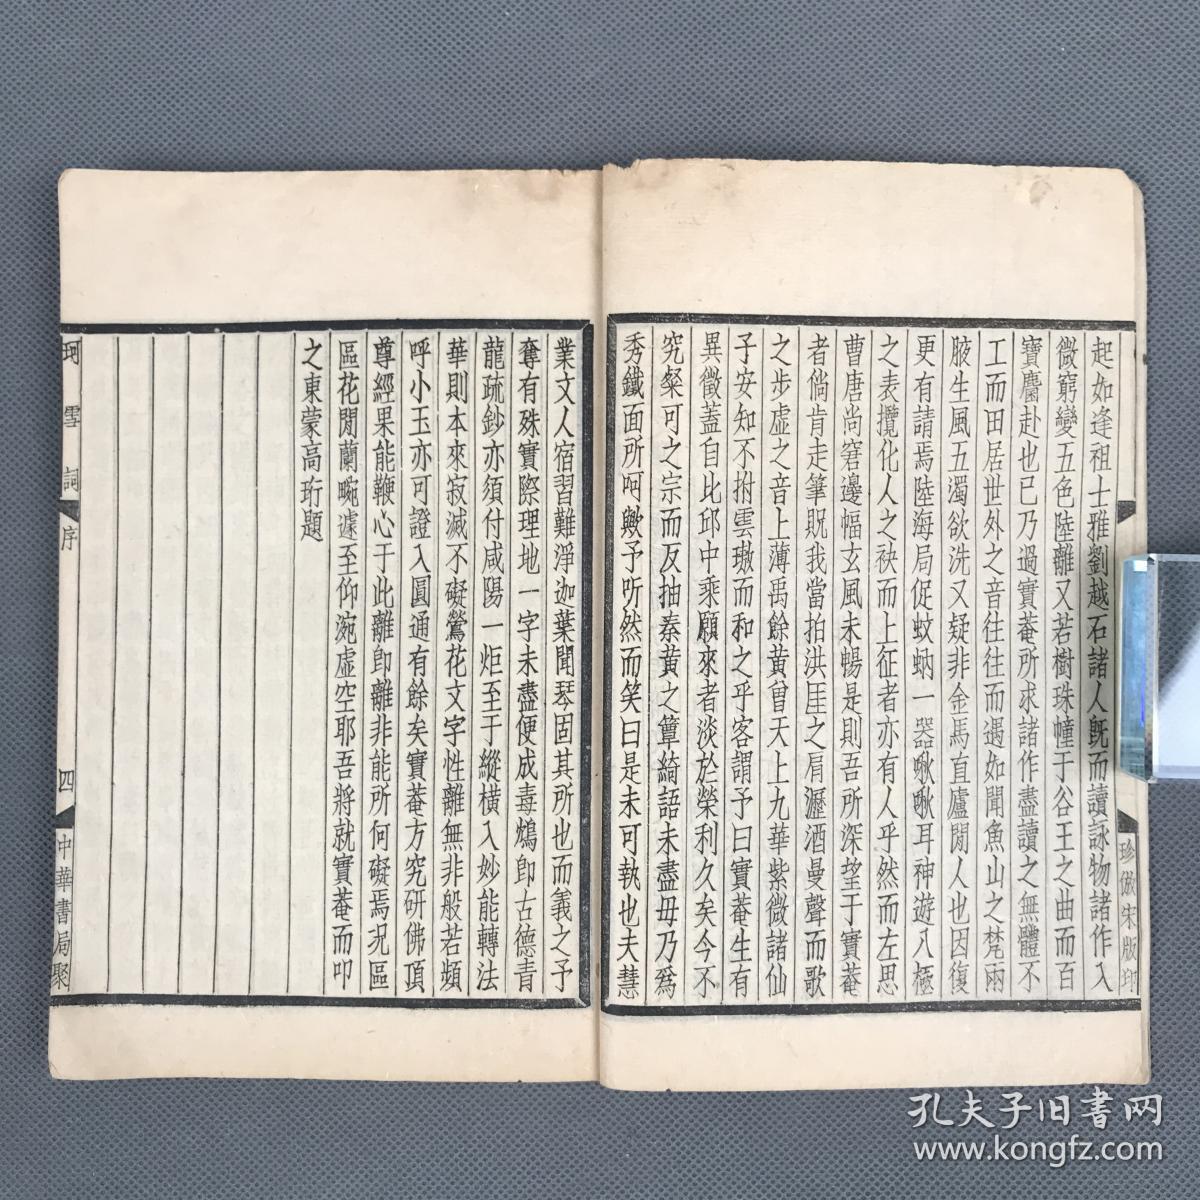 起如逢祖士雅劉越石諸人旣而讀詠物諸作入
微窮變五色陸離又若樹珠幢于谷王之曲而百
寶麕赴也已乃過實菴所求諸作盡讀之無體不
工而田居世外之音往往而遇如聞魚山之梵兩
腋生風五濁欲洗又疑非金馬直廬閒人也因復
更有請焉陸海局促蚊蚋一器啾啾耳神遊八極
之表攬化人之袂而上征者亦有人乎然而左思
曹唐尚窘邊幅玄風未暢是則吾所深望于實菴
者倘肯走筆貺我當拍洪厓之肩灑酒曼聲而歌
之步虛之音上薄禹餘黃曾天上九華紫微諸仙
子安知不拊雲璈而和之乎客謂予曰實菴生有
異徵蓋自比邱中乘願來者淡於榮利久矣今不
究粲可之宗而反抽秦黃之簟綺語未盡毋乃爲
秀鐵面所呵歟予听然而笑曰是未可執也夫慧
業文人宿習難淨迦葉聞琴固其所也而義之予
奪有殊實際理地一字未盡便成毒鴆卽古德靑
龍疏鈔亦須付咸陽一炬至于縱橫入妙能轉法
華則本來寂滅不礙鶯花文字性離無非般若頻
呼小玉亦可證入圓通有餘矣實菴方究硏佛頂
尊經果能鞭心于此離卽離非能所何礙焉況區
區花閒蘭畹遽至仰涴虛空耶吾將就實菴而叩
之東蒙高珩題
珂雪詞 序
四
中華書局聚
珍倣宋版印
孔夫子旧书网
www.kongfz.com